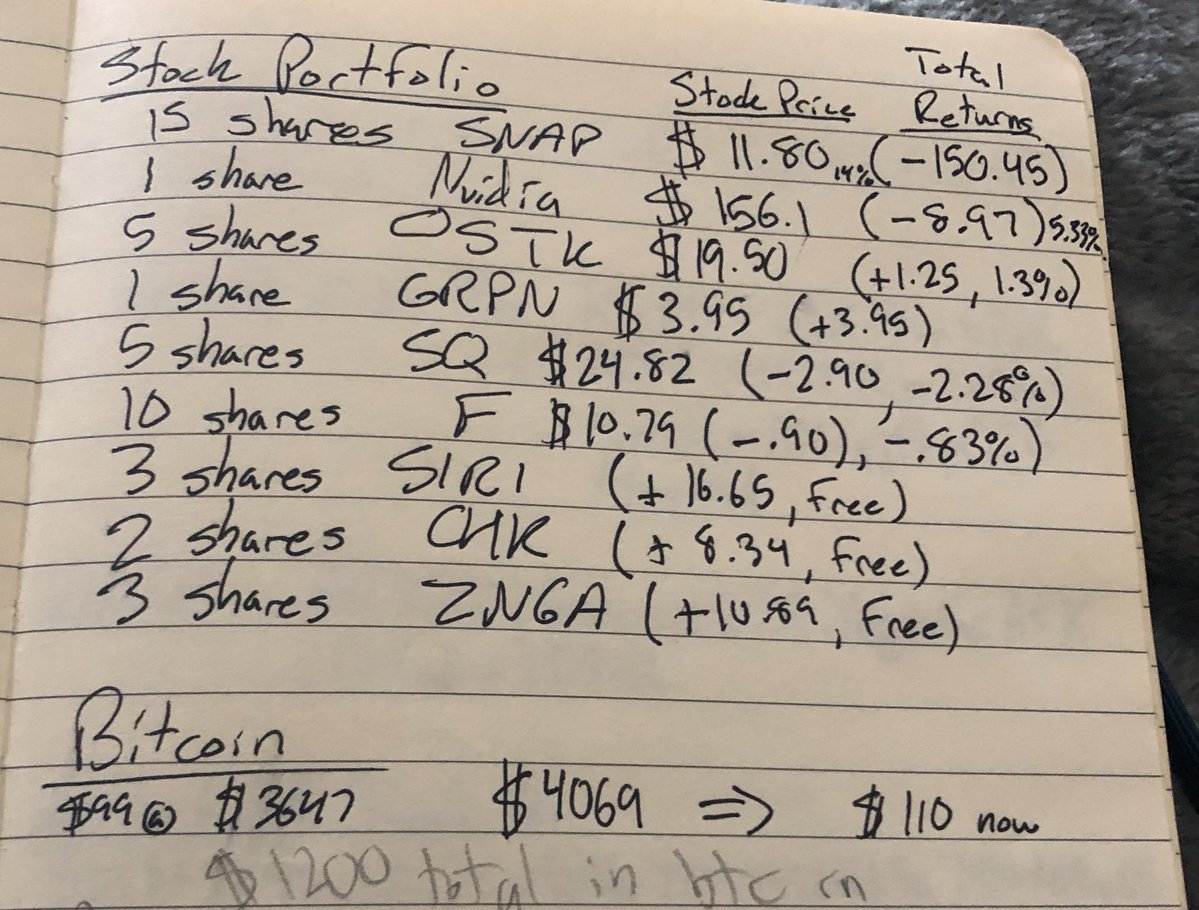 Total
Stock Portfolio Stock Price Returns
15 shares SNAP $ 11.80 14% (-150.45)
1 share Nvidia $ 156.1 (-8.97) 5.33%
5 shares OSTK $19.50 (+1.25, 1.3%)
1 share GRPN $3.95 (+3.95)
5 shares SQ $24.82 (-2.90, -2.28%)
10 shares F $10.79 (-.90), -.83%)
3 shares SIRI (+ 16.65, Free)
2 shares CHK (+ 8.34, Free)
3 shares ZNGA (+10.89, Free)
Bitcoin
$99 @ $3647 $4069 => $110 now
$1200 total in btc in